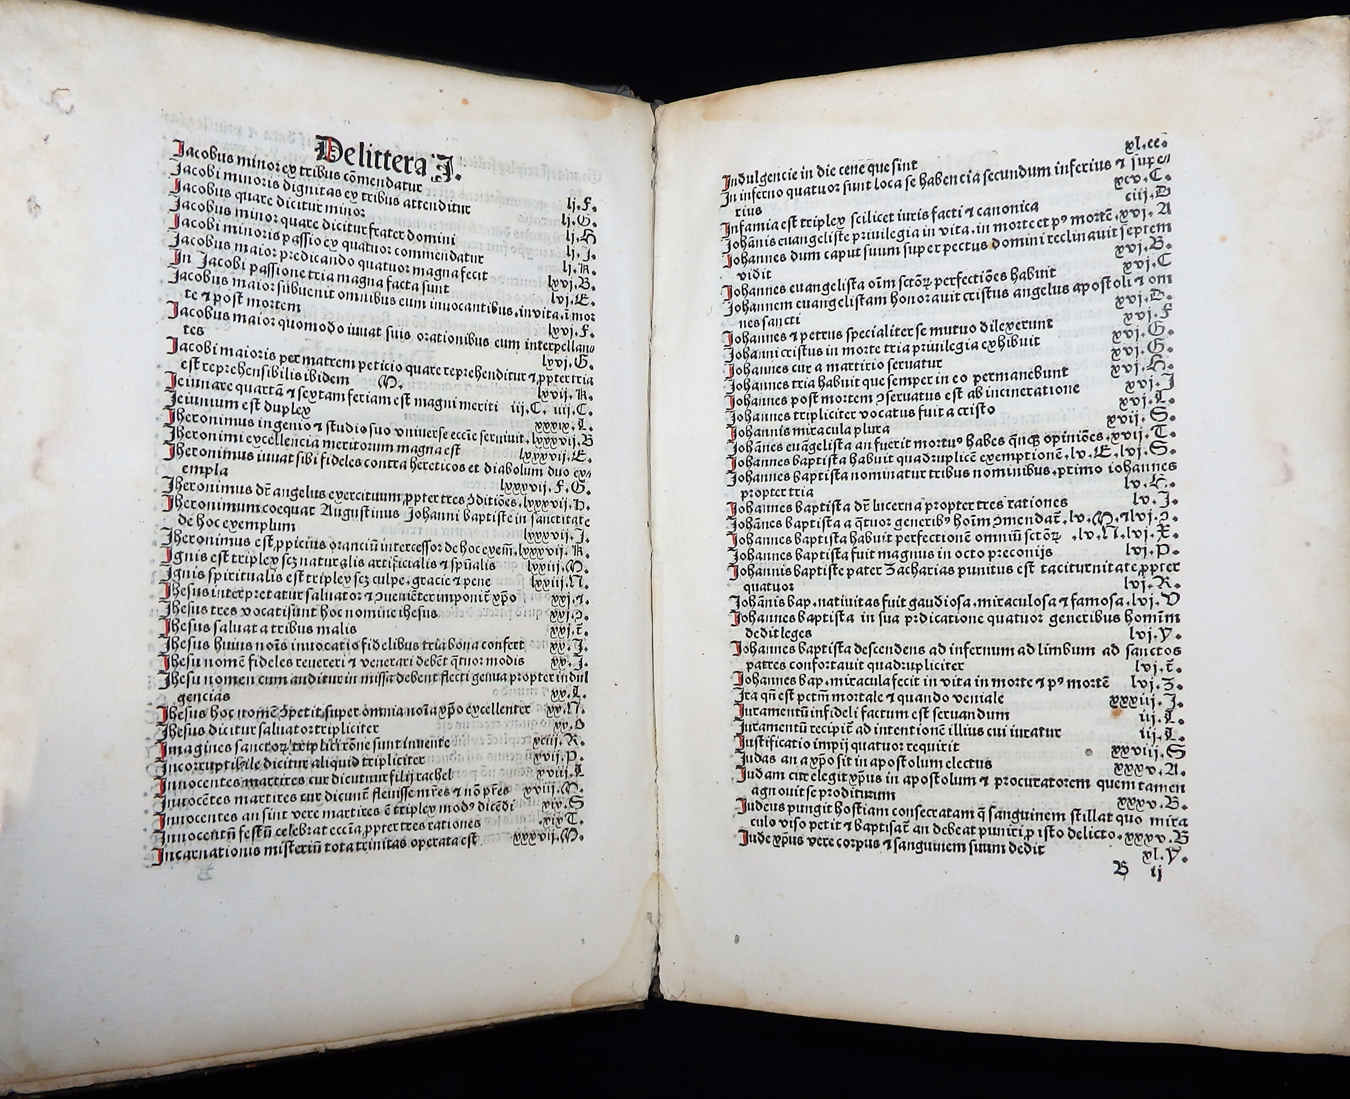 De littera J.
Jacobus minor ex tribus cōmendatur lj.F.
Jacobi minoris dignitas ex tribus attenditur lj.G.
Jacobus quare dicitur minor lj.H
Jacobus minor quare dicitur frater domini lj.J.
Jacobi minoris passio ex quatuor commendatur lj.K.
Jacobus maior predicando quatuor magna fecit lxvj.B.
In Jacobi passione tria magna facta sunt lxvj.E.
Jacobus maior subuenit omnibus eum inuocantibus. in vita. ī mor
te ⁊ post mortem lxvj.F.
Jacobus maior quomodo iuuat suis orationibus eum interpellan
tes lxvj.G.
Jacobi maioris per matrem peticio quare reprehenditur ⁊ ꝓpter tria
est reprehensibilis ibidem M. lxvij.K.
Jeiunare quartā ⁊ sextam feriam est magni meriti iij.C. iiij.C.
Jeiunium est duplex xxxix.L.
Jheronimus ingenio ⁊ studio suo vniuerse eccīe seruiuit. lxxxvij.B
Jheronimi excellencia meritorum magna est lxxxvij.E.
Jheronimus iuuat sibi fideles contra hereticos et diabolum duo ex
empla lxxxvij.F.G.
Jheronimus dr̄ angelus exercituum ꝓpter tres ꝯditiōes. lxxxvij.H.
Jheronimum coequat Augustinus Johanni baptiste in sanctitate
de hoc exemplum lxxxvij.J.
Jheronimus est ꝓpicius oranciū intercessor de hoc exem̄. lxxxvij.K.
Ignis est triplex scꝫ naturalis artificialis ⁊ spūalis lxxiij.M.
Ignis spiritualis est triplex scꝫ culpe. gracie ⁊ pene lxxiij.N.
Jhesus interpretatur saluator ⁊ ꝯuenēter imponit̄ xp̄o xxj.⁊.
Jhesus tres vocati sunt hoc nomine ihesus xxj.ꝯ.
Jhesus saluat a tribus malis xxj.t̄.
Jhesus huius nōis inuocatio fidelibus tria bona confert xx.J.
Jhesu nomē fideles reuereri ⁊ venerari debēt q̄tuor modis xx.J.
Jhesu nomen cum auditur in missa debent flecti genua propter indul
gencias xx.L.
Jhesus hoc nomē ꝯpetit. super omnia noīa xp̄o excellenter xx.N.
Jhesus dicitur saluator tripliciter xx.O
Imagines sanctoꝝ triplici rōne sunt inuente xciij.R.
Incorruptibile dicitur aliquid tripliciter xvij.P.
Innocentes martires cur dicuntur filij rachel xviij.L
Innocētes martires cur dicunt̄ fleuisse mr̄es ⁊ nō pr̄es xviij.M.
Innocentes an sint vere martires ē triplex modꝰ dicēdi xix.S
Innocentū festū celebrat eccīa ꝓpter tres rationes xix.T.
Incarnationis misteriū tota trinitas operata est xxxvij.M.
Indulgencie in die cene que sint xl.ee.
In inferno quatuor sunt loca se habencia secundum inferius ⁊ supe
rius xcv.C.
Infamia est triplex scilicet iuris facti ⁊ canonica ciij.D
Johānis euangeliste priuilegia in vita. in morte et pꝰ mortē. xvj.A
Johannes dum caput suum super pectus domini reclinauit septem
vidit xvj.B.
Johannes euangelista oīm sctōꝝ perfectiōes habuit xvj.C
Johannem euangelistam honorauit cristus angelus apostoli ⁊ om
nes sancti xvj.D.
Johannes ⁊ petrus specialiter se mutuo dilexerunt xvj.F
Johanni cristus in morte tria priuilegia exhibuit xvj.G.
Johannes cur a martirio seruatur xvj.G.
Johannes tria habuit que semper in eo permanebunt xvj.H.
Johannes post mortem ꝯseruatus est ab incineratione xvj.J
Johannes tripliciter vocatus fuit a cristo xvj.L.
Johannis miracula plura xvij.S.
Johānes euāgelista an fuerit mortuꝰ habes q̄nqꝫ opiniōes. xvij.T.
Johannes baptista habuit quadruplicē exemptionē. lv.E. lvj.S.
Johannes baptista nominatur tribus nominibus. primo iohannes
propter tria lv.H.
Johannes baptista dr̄ lucerna propter tres rationes lv.J.
Johānes baptista a q̄tuor generibꝰ hoīm ꝯmendat̄. lv.M. ⁊ lvj.ꝯ.
Johannes baptista habuit perfectionē omniū sctōꝝ .lv.N. lvj.X.
Johannes baptista fuit magnus in octo preconijs lvj.P.
Johannis baptiste pater Zacharias punitus est taciturnitate ꝓpter
quatuor lvj.R.
Johānis bap. natiuitas fuit gaudiosa. miraculosa ⁊ famosa. lvj.V
Johannes baptista in sua p̄dicatione quatuor generibus hominū
dedit leges lvj.Y.
Johannes baptista descendens ad infernum ad limbum ad sanctos
patres confortauit quadrupliciter lvj.t̄.
Johannes bap. miracula fecit in vita in morte ⁊ pꝰ mortē lvj.Z.
Ira qn̄ est pctm̄ mortale ⁊ quando veniale xxxiij.J.
Iuramentū infideli factum est seruandum iij.L.
Iuramentū recipit̄ ad intentionē illius cui iuratur iij.L.
Iustificatio impij quatuor requirit xxviij.S
Judas an a xp̄o sit in apostolum electus xxxv.A.
Judam cur elegit xp̄us in apostolum ⁊ procuratorem quem tamen
agnouit se proditurum xxxv.B.
Judeus pungit hostiam consecratam q̄ sanguinem stillat quo mira
culo viso petit ⁊ baptisat̄ an debeat puniri ꝓ isto delicto. xxxv.B
Jude xp̄us vere corpus ⁊ sanguinem suum dedit xl.Y.
B ij